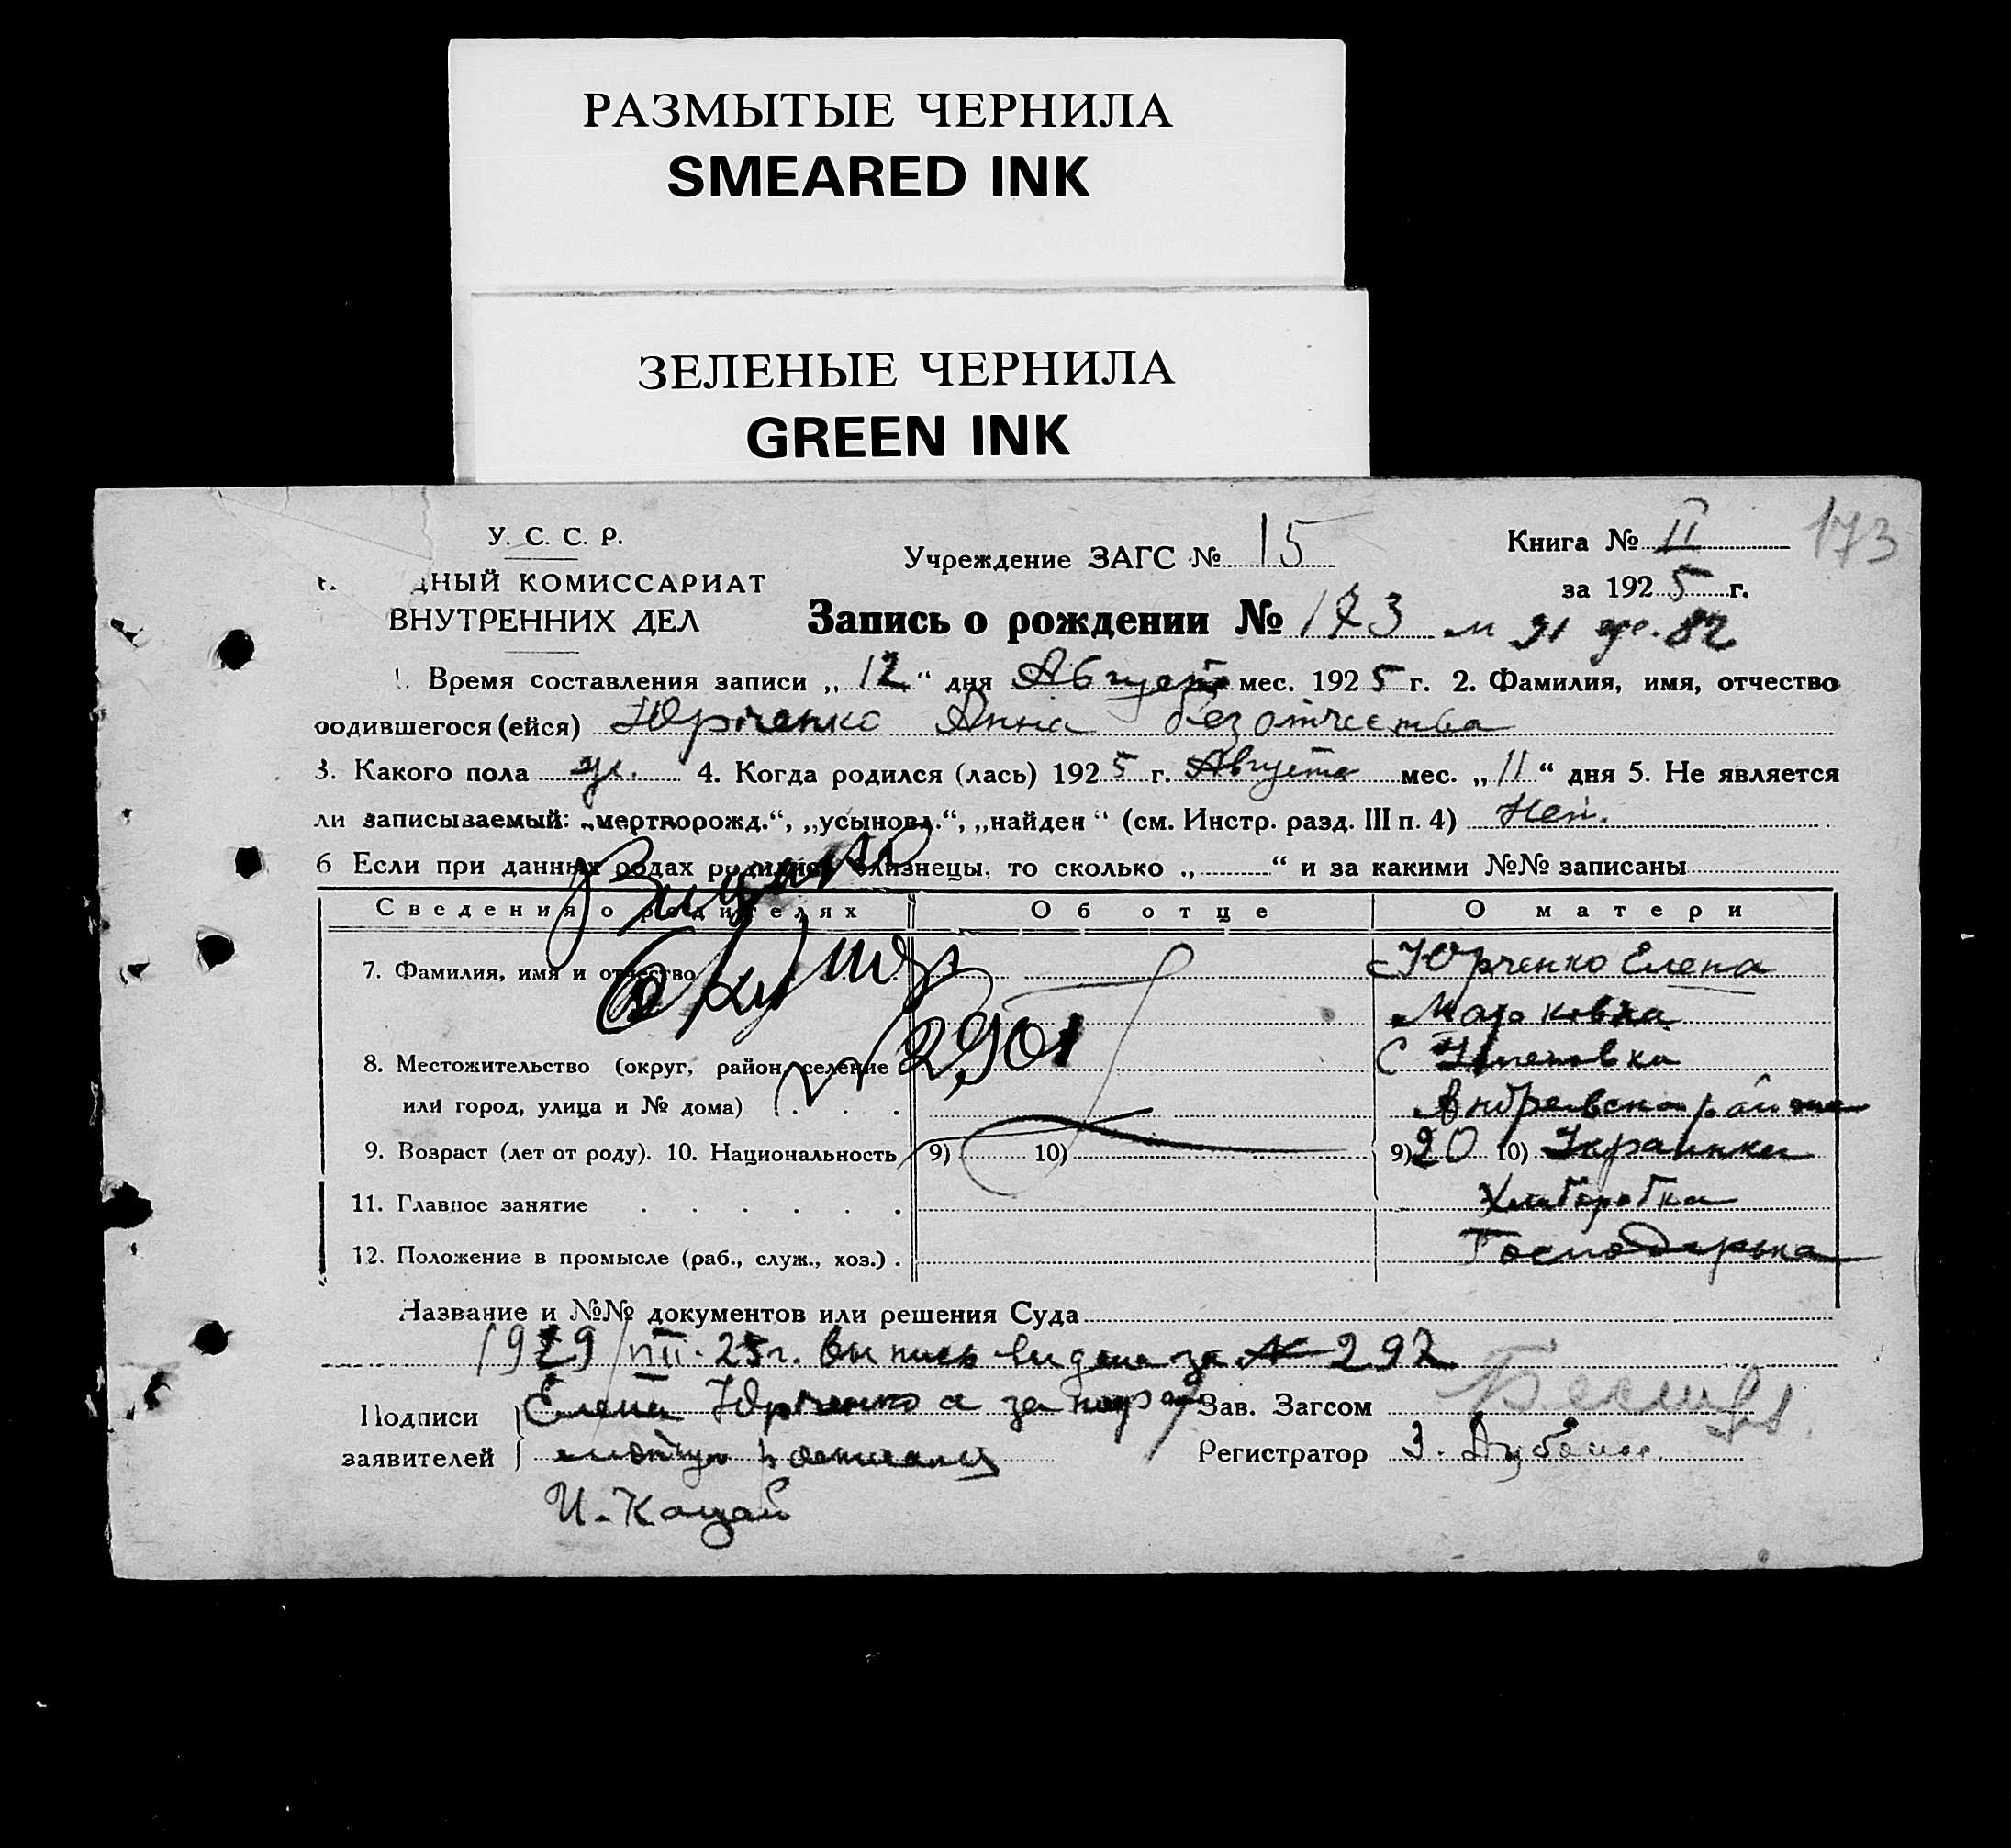 РАЗМЫТЫЕ ЧЕРНИЛА
SMEARED INK
ЗЕЛЕНЫЕ ЧЕРНИЛА
GREEN INK
У. С. С. Р.
ДНЫЙ КОМИССАРИАТ
ВНУТРЕННИХ ДЕЛ
Учреждение ЗАГС № 15
Книга № II
173
за 1925 г.
Запись о рождении № 173 м 91 ж. 82
1. Время составления записи „12" дня Август мес. 1925 г. 2. Фамилия, имя, отчество
родившегося (ейся) Юрченко Анна без отчества
3. Какого пола ж. 4. Когда родился (лась) 1925 г. Августа мес. „11" дня 5. Не является
ли записываемый: „мертворожд.", „усыновл.", „найден" (см. Инстр. разд. III п. 4) Нет.
6 Если при данных родах родились близнецы, то сколько „ " и за какими №№ записаны
Сведения о родителях Об отце О матери
7. Фамилия, имя и отчество Юрченко Елена
Марковна
8. Местожительство (округ, район, селение С
или город, улица и № дома) Андреевского района
9. Возраст (лет от роду). 10. Национальность 9) 10) 9) 20 10) Украинка
11. Главное занятие Хлиборобка
12. Положение в промысле (раб., служ., хоз.) . Господарька
№ 2901
Название и №№ документов или решения Суда
19 /VIII-25 г. Выпись видана за № 292
Подписи заявителей Елена Юрченко а за
И. Кацай
Зав. Загсом
Регистратор З.